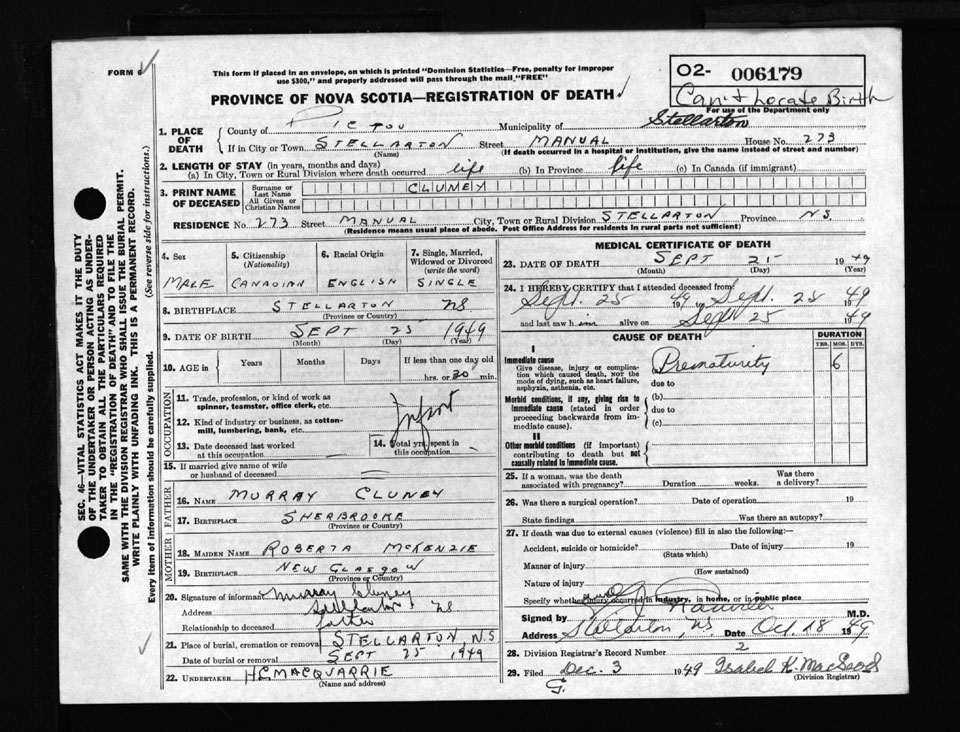 FORM 6
This form if placed in an envelope, on which is printed "Dominion Statistics—Free, penalty for improper
use $300," and properly addressed will pass through the mail "FREE"
PROVINCE OF NOVA SCOTIA—REGISTRATION OF DEATH
02- 006179
Can't Locate Birth
For use of the Department only
1. PLACE OF DEATH
County of PICTOU Municipality of Stellarton
If in City or Town STELLARTON Street MANUAL House No. 273
(Name) (If death occurred in a hospital or institution, give the name instead of street and number)
2. LENGTH OF STAY (in years, months and days)
(a) In City, Town or Rural Division where death occurred life (b) In Province life (c) In Canada (if immigrant)
3. PRINT NAME OF DECEASED
Surname or Last Name CLUNEY
All Given or Christian Names
RESIDENCE No. 273 Street MANUAL City, Town or Rural Division STELLARTON Province N.S.
(Residence means usual place of abode. Post Office Address for residents in rural parts not sufficient)
4. Sex 5. Citizenship (Nationality) 6. Racial Origin 7. Single, Married, Widowed or Divorced (write the word)
MALE CANADIAN ENGLISH SINGLE
8. BIRTHPLACE STELLARTON NS
(Province or Country)
9. DATE OF BIRTH SEPT 25 1949
(Month) (Day) (Year)
10. AGE in Years Months Days If less than one day old
hrs. or 30 min.
OCCUPATION
11. Trade, profession, or kind of work as
spinner, teamster, office clerk, etc.
Infant
12. Kind of industry or business, as cotton-
mill, lumbering, bank, etc.
13. Date deceased last worked
at this occupation
14. Total yrs. spent in
this occupation
15. If married give name of wife
or husband of deceased
FATHER
16. NAME MURRAY CLUNEY
17. BIRTHPLACE SHERBROOKE
(Province or Country)
MOTHER
18. MAIDEN NAME ROBERTA McKENZIE
19. BIRTHPLACE NEW GLASGOW
(Province or Country)
20. Signature of informant Murray Cluney
Address Stellarton NS
Relationship to deceased father
21. Place of burial, cremation or removal STELLARTON, N.S
Date of burial or removal SEPT 25 1949
22. UNDERTAKER H.C. MACQUARRIE
(Name and address)
MEDICAL CERTIFICATE OF DEATH
23. DATE OF DEATH SEPT 25 1949
(Month) (Day) (Year)
24. I HEREBY CERTIFY that I attended deceased from
Sept. 25 1949 to Sept. 25 1949
and last saw him alive on Sept 25 1949
CAUSE OF DEATH DURATION
YRS. MOS. DYS.
I
Immediate cause Prematurity 6
Give disease, injury or complica-
tion which caused death, NOT the
mode of dying, such as heart failure,
asphyxia, asthenia, etc.
due to
Morbid conditions, if any, giving rise to
immediate cause (stated in order
proceeding backwards from im-
mediate cause).
(b)
due to
(c)
II
Other morbid conditions (if important)
contributing to death but not
causally related to immediate cause.
25. If a woman, was the death
associated with pregnancy? Duration weeks. Was there
a delivery?
26. Was there a surgical operation? Date of operation 19
State findings Was there an autopsy?
27. If death was due to external causes (violence) fill in also the following:
Accident, suicide or homicide? Date of injury 19
(State which)
Manner of injury
(How sustained)
Nature of injury
Specify whether injury occurred in industry, in home, or in public place
Signed by M.D.
Address Stellarton, NS Date Oct. 18 1949
28. Division Registrar's Record Number 2
29. Filed Dec. 3 1949 Isabel K. MacLeod
(Division Registrar)
G.
SEC. 46—VITAL STATISTICS ACT MAKES IT THE DUTY
OF THE UNDERTAKER OR PERSON ACTING AS UNDER-
TAKER TO OBTAIN ALL THE PARTICULARS REQUIRED
IN THE "REGISTRATION OF DEATH" AND TO FILE THE
SAME WITH THE DIVISION REGISTRAR WHO SHALL ISSUE THE BURIAL PERMIT.
WRITE PLAINLY WITH UNFADING INK. THIS IS A PERMANENT RECORD.
Every item of information should be carefully supplied. (See reverse side for instructions.)